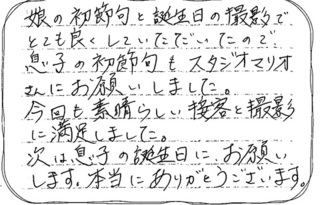 娘の初節句と誕生日の撮影で
とても良くしていただいたので
息子の初節句もスタジオマリオ
さんにお願いしました。
今回も素晴らしい接客と撮影
に満足しました。
次は息子の誕生日にお願い
します。本当にありがとうございます。